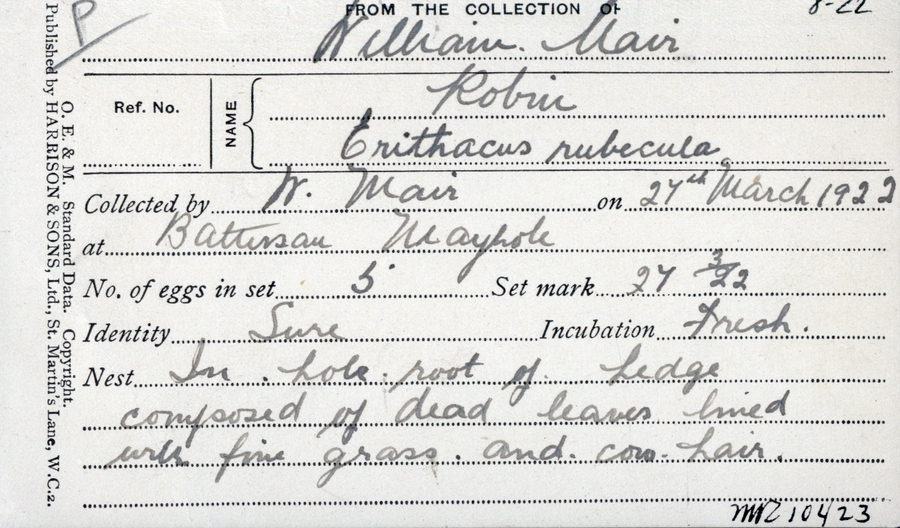 FROM THE COLLECTION OF
8-22
P
William. Mair
Ref. No.
NAME
Robin
Erithacus rubecula
Collected by W. Mair on 27th March 1922
at Mayhole
No. of eggs in set 5 Set mark 27 3/22
Identity Sure Incubation Fresh.
Nest In. hole. root of. hedge
composed of dead leaves lined
with fine grass. and. cow. hair.
MR 10423
O. E. & M. Standard Data. Copyright.
Published by HARRISON & SONS, Ltd., St. Martin's Lane, W.C.2.